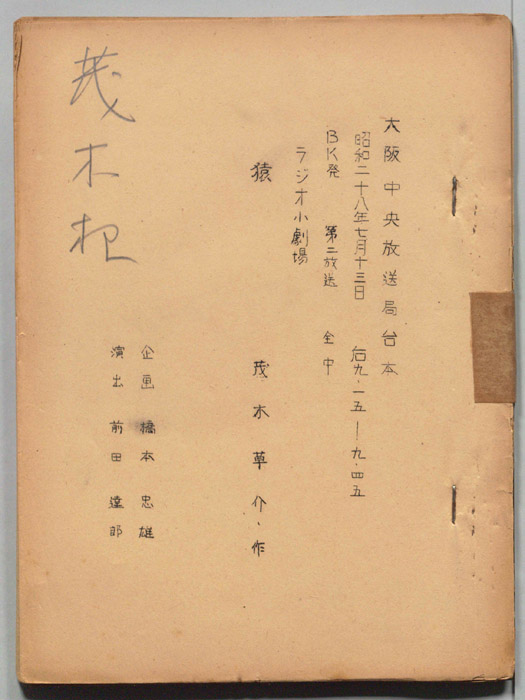 大阪中央放送局台本
昭和二十八年七月十三日 后九・一五―九・四五
BK発 第二放送 全中
ラジオ小劇場
猿 茂木草介・作
企画 橋本忠雄
演出 前田達郎
茂木